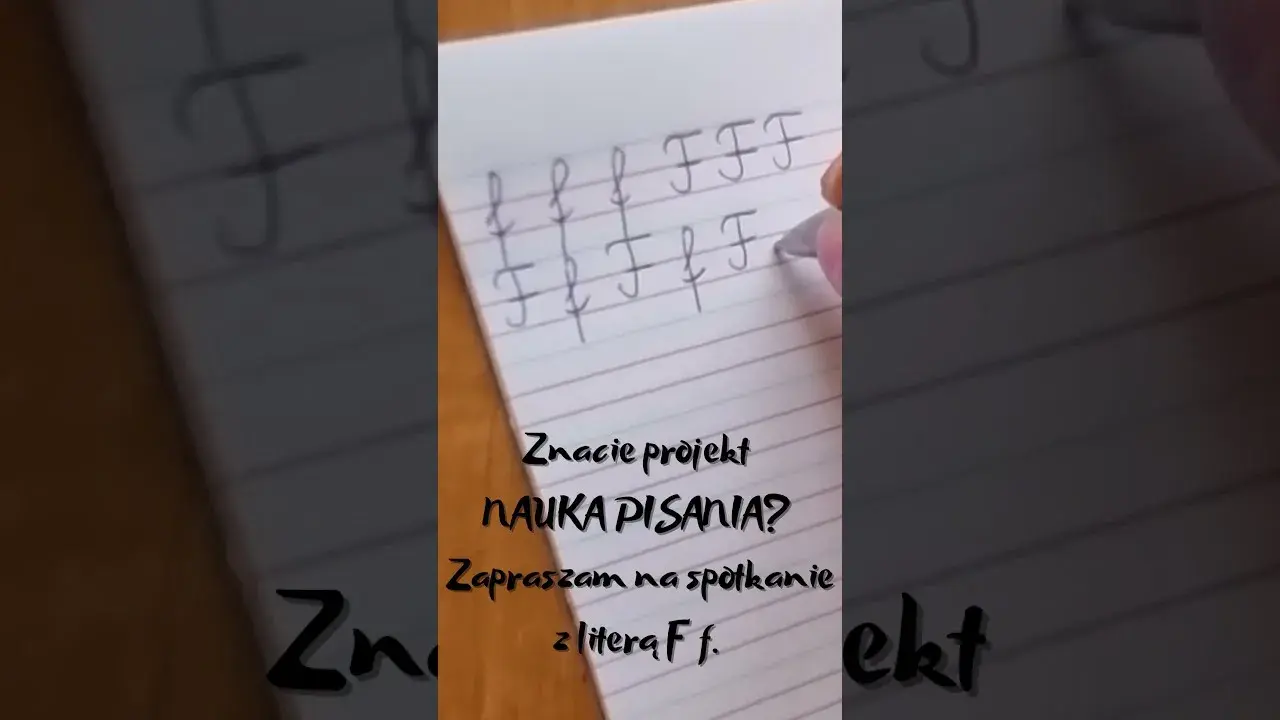 f f f F F F
F f F f F
Znacie projekt
NAUKA PISANIA?
Zapraszam na spotkanie
z literą F f.